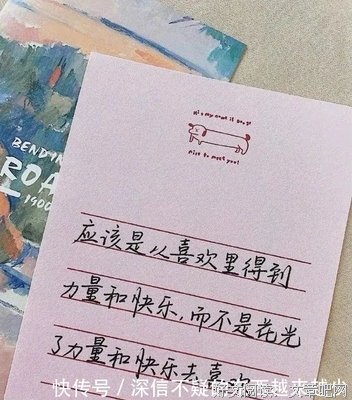 BENDIN
ROA
1900
Hi~my name is Doug!
nice to meet you!
应该是以喜欢里得到
力量和快乐,而不是花光
了力量和快乐去喜欢
快传号/深信不疑
越来越少